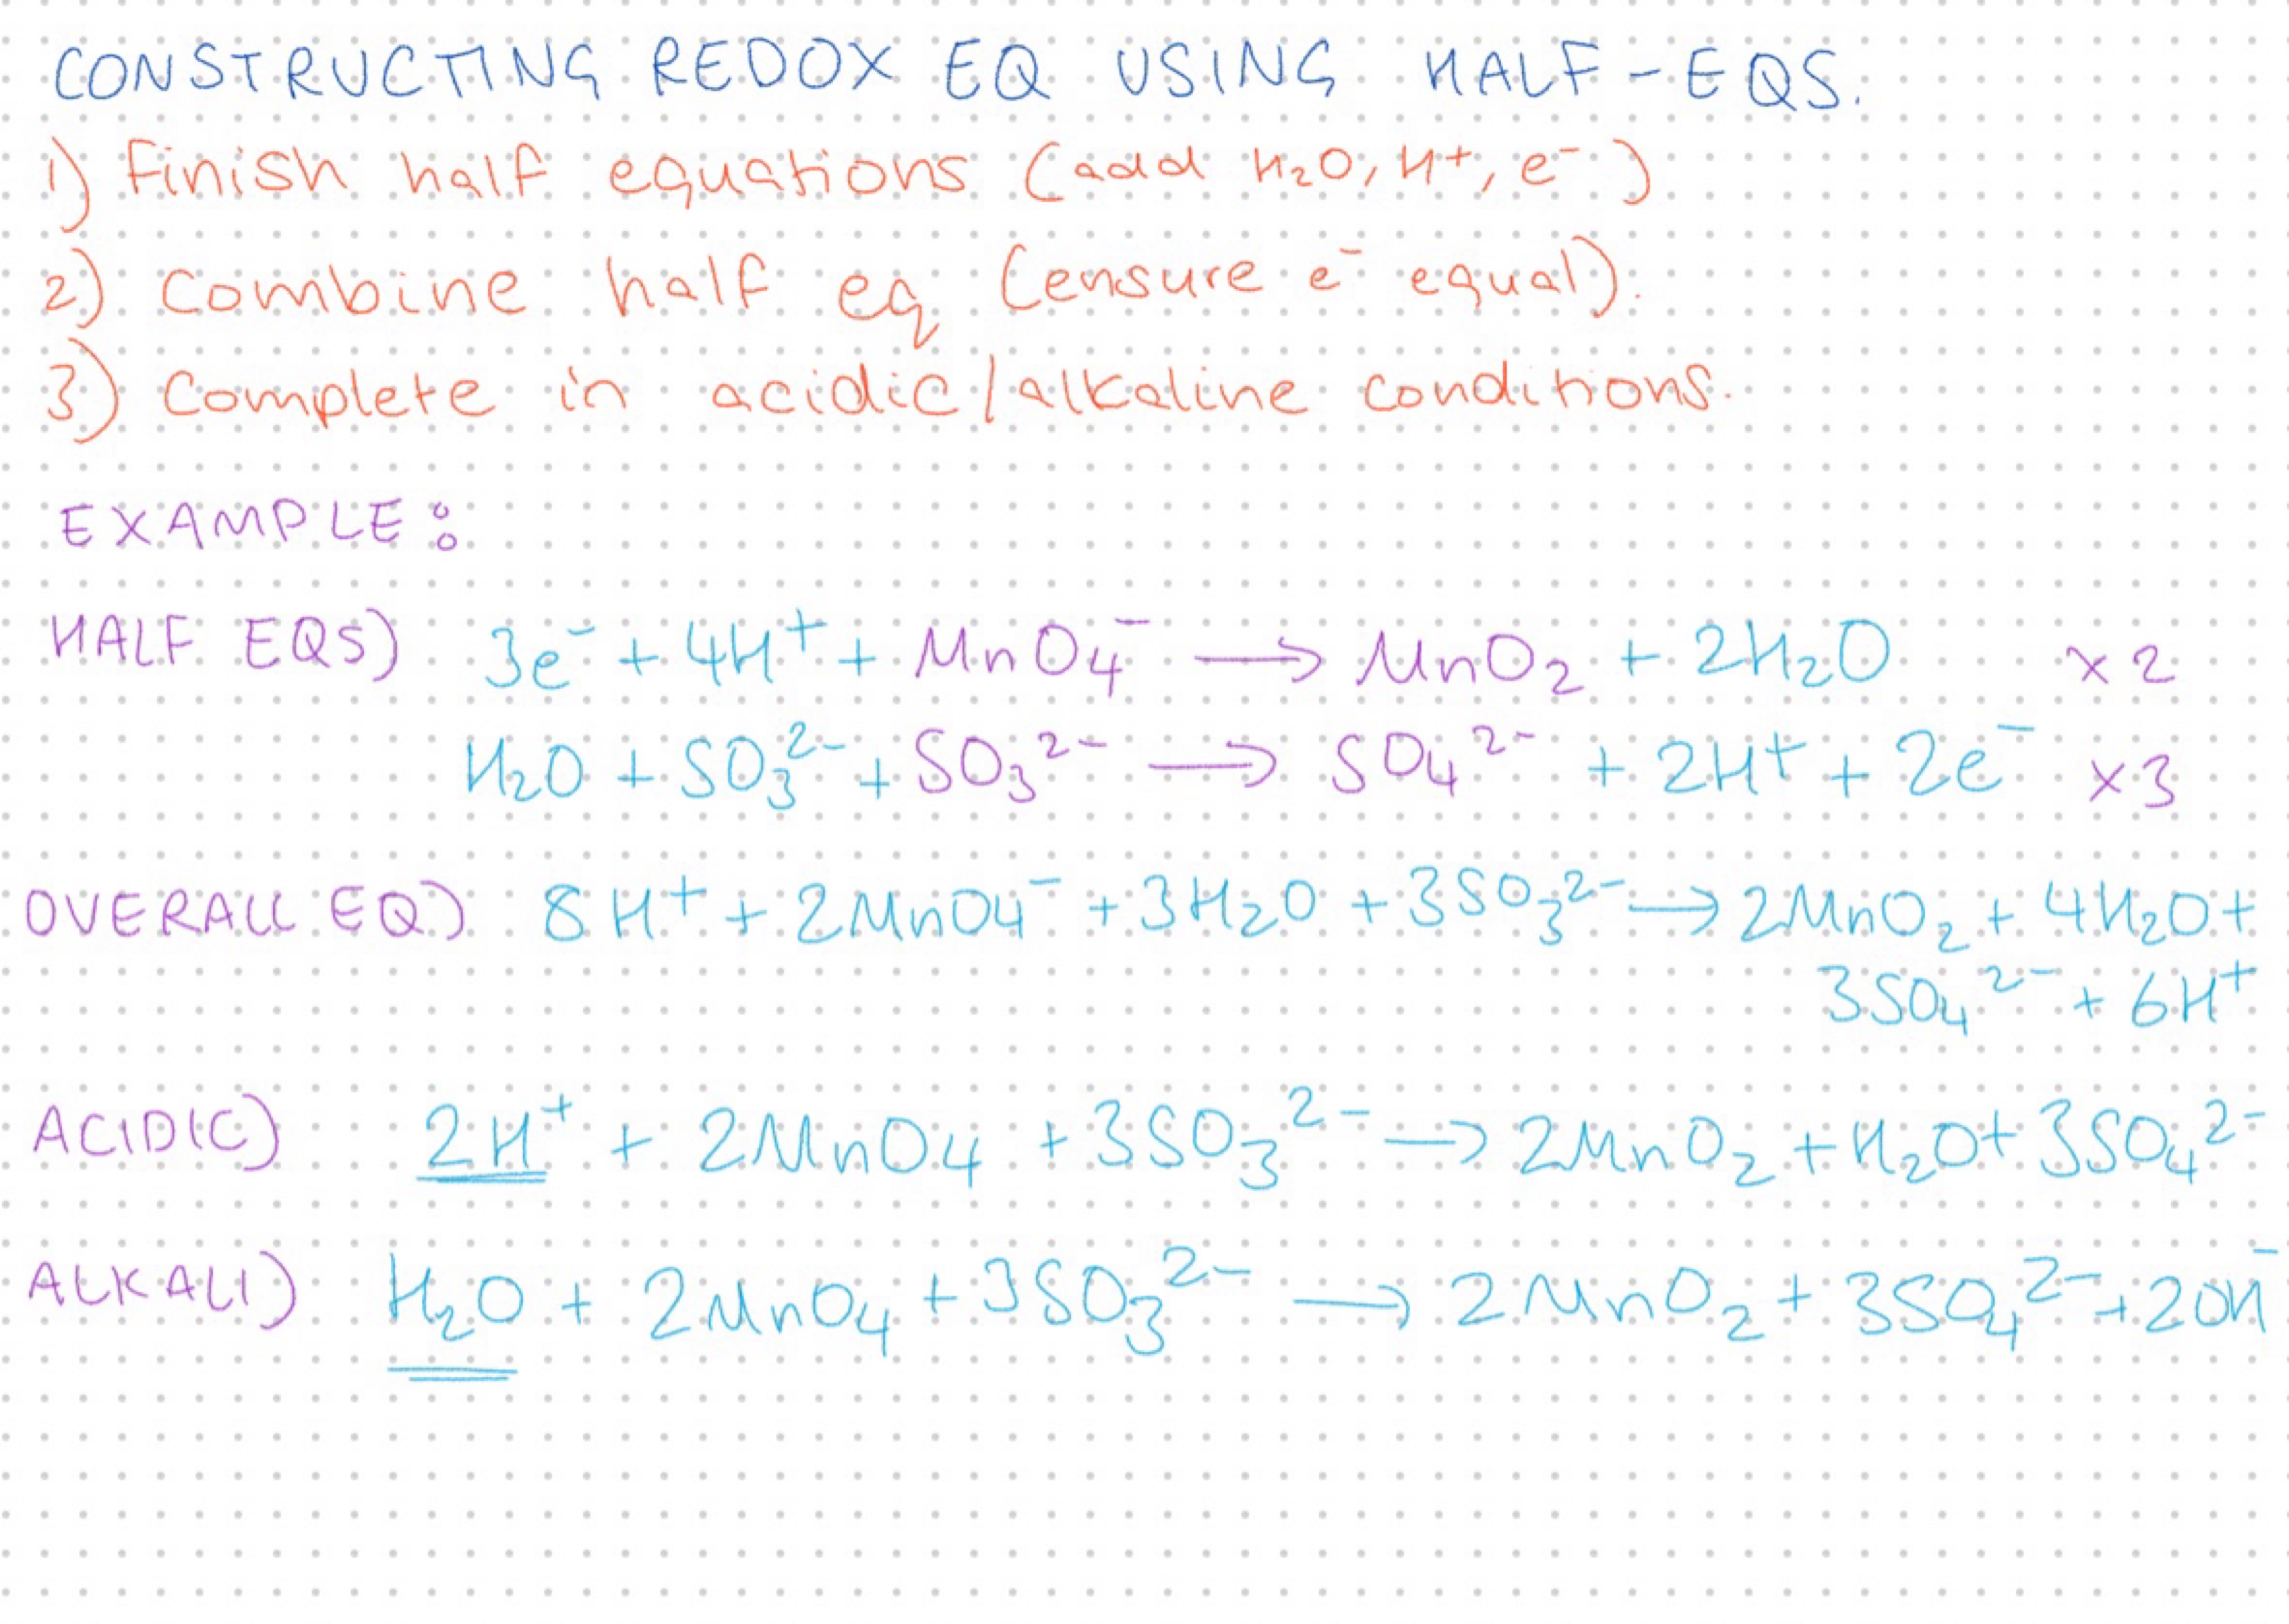 CONSTRUCTING REDOX EQ USING HALF-EQS.
1) Finish half equations (add H₂O, H⁺, e⁻)
2) Combine half eq (ensure e⁻ equal).
3) Complete in acidic/alkaline conditions.
EXAMPLE:
HALF EQS) 3e⁻ + 4H⁺ + MnO₄⁻ → MnO₂ + 2H₂O ×2
H₂O + SO₃²⁻ + SO₃²⁻ → SO₄²⁻ + 2H⁺ + 2e⁻ ×3
OVERALL EQ) 8H⁺ + 2MnO4⁻ + 3H₂O + 3SO₃²⁻ → 2MnO₂ + 4H₂O +
3SO₄²⁻ + 6H⁺
ACIDIC) 2H⁺ + 2MnO4 + 3SO₃²⁻ → 2MnO₂ + H₂O + 3SO₄²⁻
ALKALI) H₂O + 2MnO₄ + 3SO₃²⁻ → 2MnO₂ + 3SO₄²⁻ + 2OH⁻